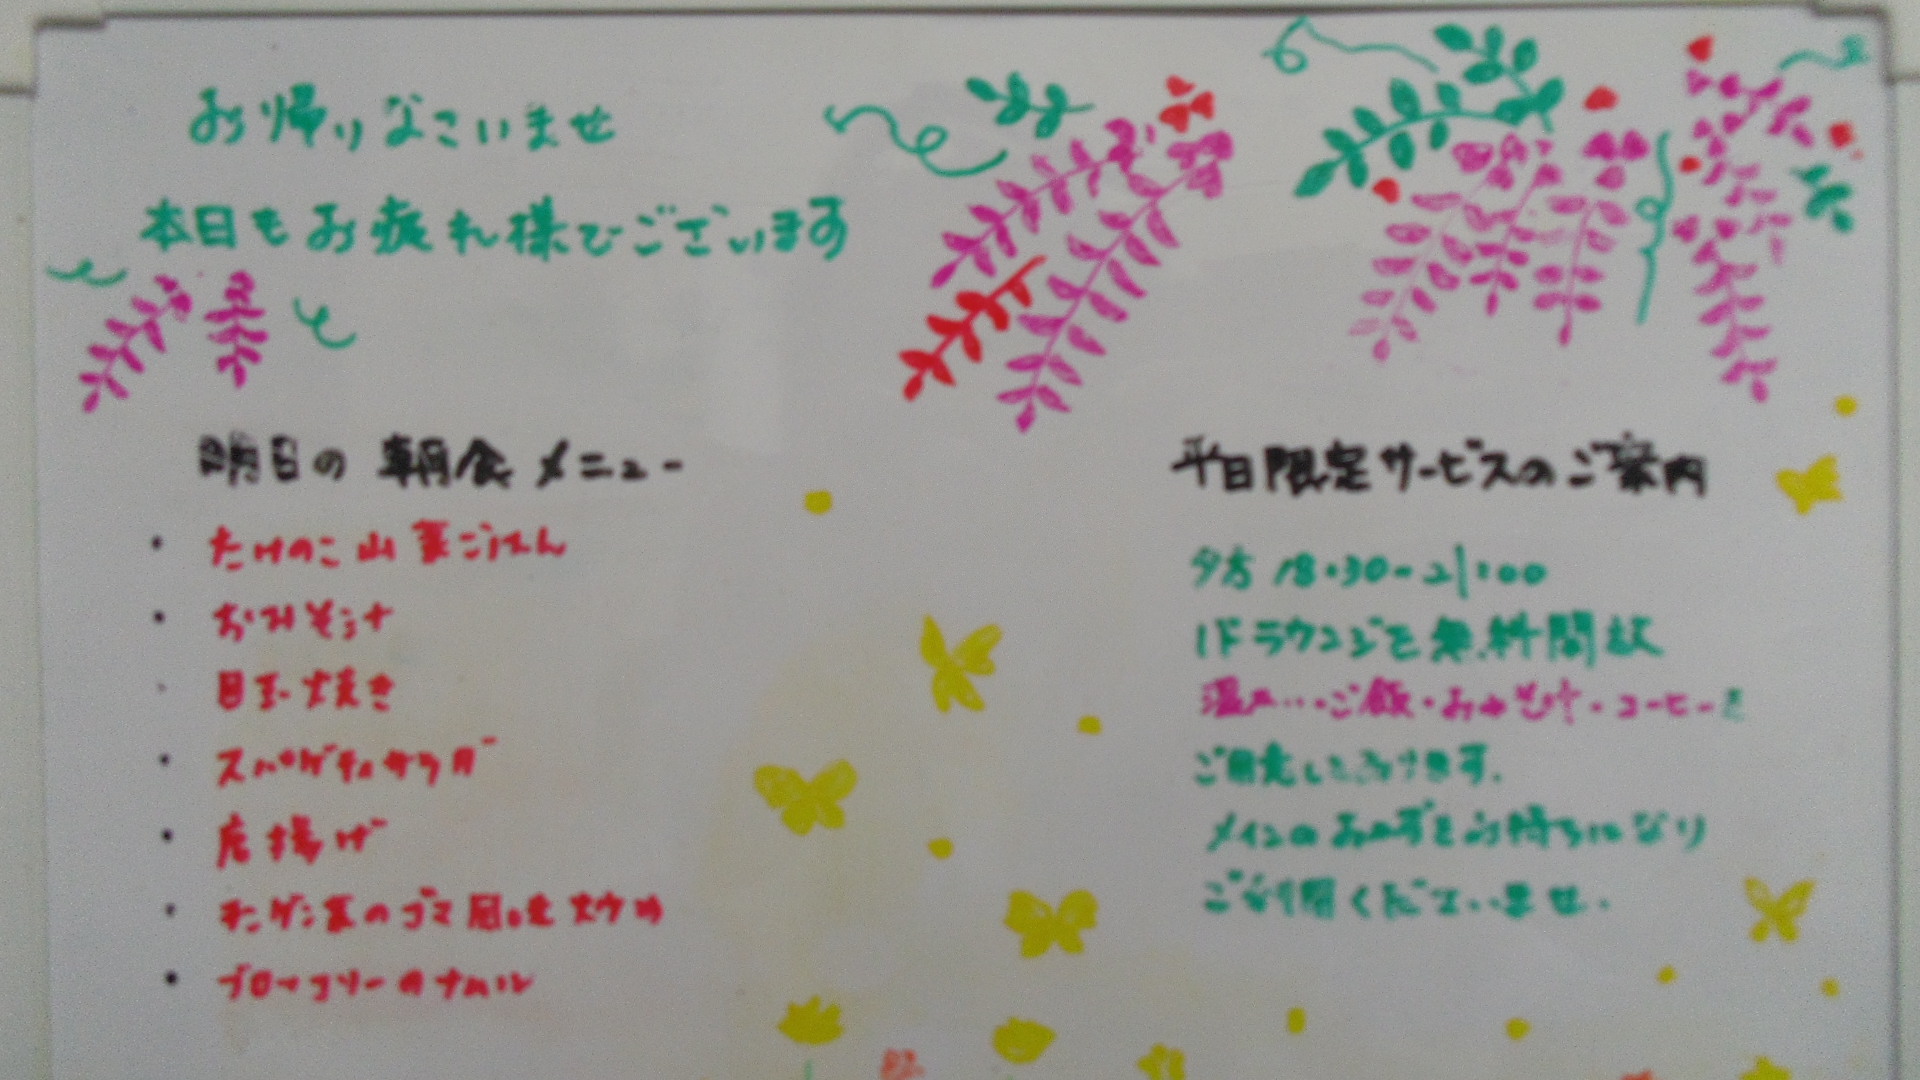 お帰りなさいませ
本日もお疲れ様でございます
明日の朝食メニュー
・たけのこ山菜ごはん
・おみそ汁
・目玉焼き
・スパゲティサラダ
・唐揚げ
・チンゲン菜のゴマ風味炒め
・ブロッコリーのナムル
平日限定サービスのご案内
夕方 18:30-21:00
1Fラウンジを無料開放
温か…ご飯・おみそ汁・コーヒーを
ご用意しております。
メインのおかずをお持ちになり
ご利用くださいませ。